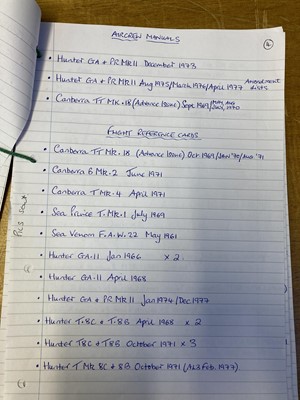 AIRCREW MANUALS
4
• Hunter GA + PR MK 11 December 1973
• Hunter GA + PR MK 11 Aug 1975/March 1976/April 1977 Amendment lists
• Canberra TT MK.18 (Advance Issue) Sept 1969/ 1970
FLIGHT REFERENCE CARDS
• Canberra TT MK.18 (Advance Issue) Oct 1969/ '70/Aug '71
• Canberra B MK.2 June 1971
• Canberra T MK.4 April 1971
• Sea Prince T.MK.1 July 1969
• Sea Venom F.A.W.22 May 1961
Pics
• Hunter GA.11 Jan 1966 x 2
• Hunter GA.11 April 1968
• Hunter GA + PR MK11 Jan 1974/Dec 1977
• Hunter T.8C + T.8B April 1968 x 2
• Hunter T8C + T8B October 1971 x 3
• Hunter T MK 8C + 8B October 1971 (AL3 Feb. 1977)